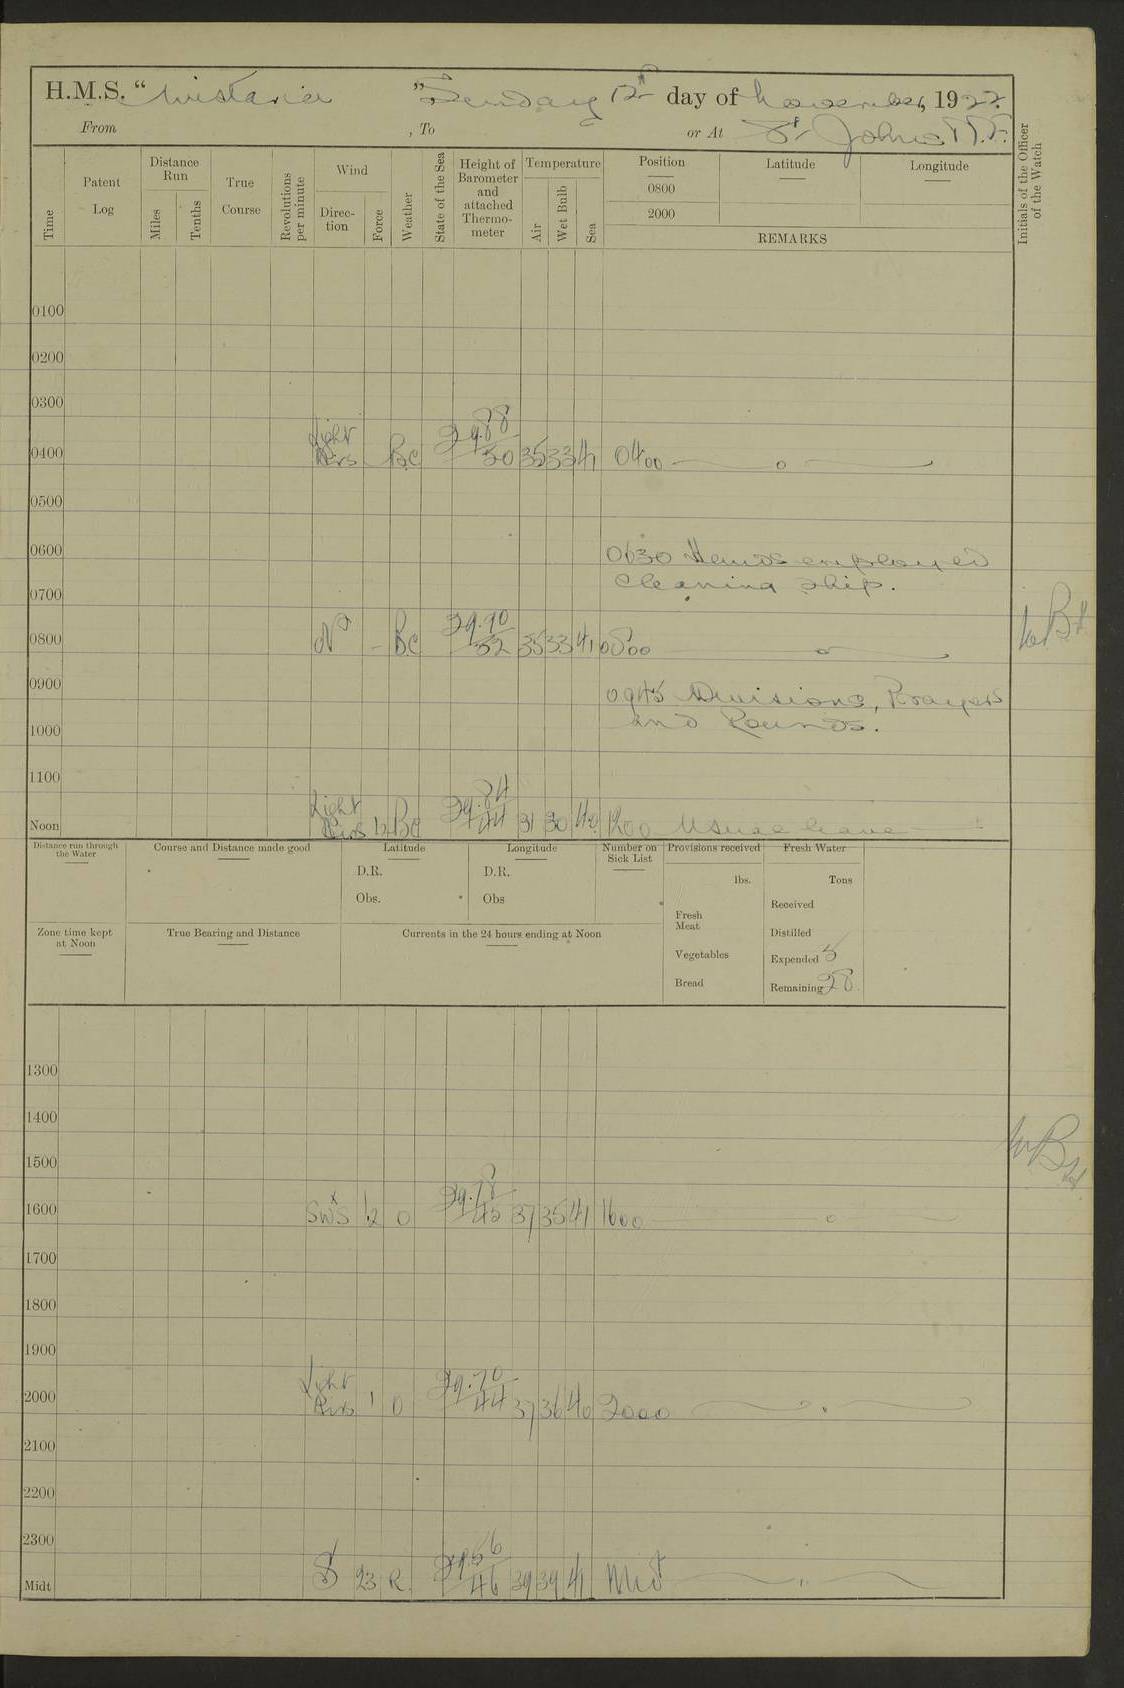 H.M.S. “Wistaria ” Sunday 12th day of November, 1922.
From , To or At St Johns N.F.
Time
Patent Log
Distance Run
Miles
Tenths
True Course
Revolutions per minute
Wind
Direction
Force
Weather
State of the Sea
Height of Barometer and attached Thermometer
Temperature
Air
Wet Bulb
Sea
Position Latitude Longitude
0800
2000
REMARKS
Initials of the Officer of the Watch
0100
0200
0300
0400 Light Airs Bc 29.88 50 35 33 41 0400
0500
0600 0630 Hands employed
cleaning ship.
0700
0800 - Bc 29.90 52 35 33 41 0800
0900 0945 Divisions, Prayers
and Rounds.
1000
1100
Noon Light Airs 1/2 Bc 29.84 44 31 30 40 1200 Usual leave
Distance run through the Water
Course and Distance made good
Latitude
D.R.
Obs.
Longitude
D.R.
Obs
Number on Sick List
Provisions received
lbs.
Fresh Meat
Vegetables
Bread
Fresh Water
Tons
Received
Distilled
Expended 5
Remaining 28
Zone time kept at Noon
True Bearing and Distance
Currents in the 24 hours ending at Noon
1300
1400
1500
1600 SWxS 1.2 O 29.78 45 37 35 41 1600
1700
1800
1900
2000 Light Airs 1 O 29.70 44 37 36 40 2000
2100
2200
2300
Midt S 23 R. 29.56 46 39 39 41 Mid